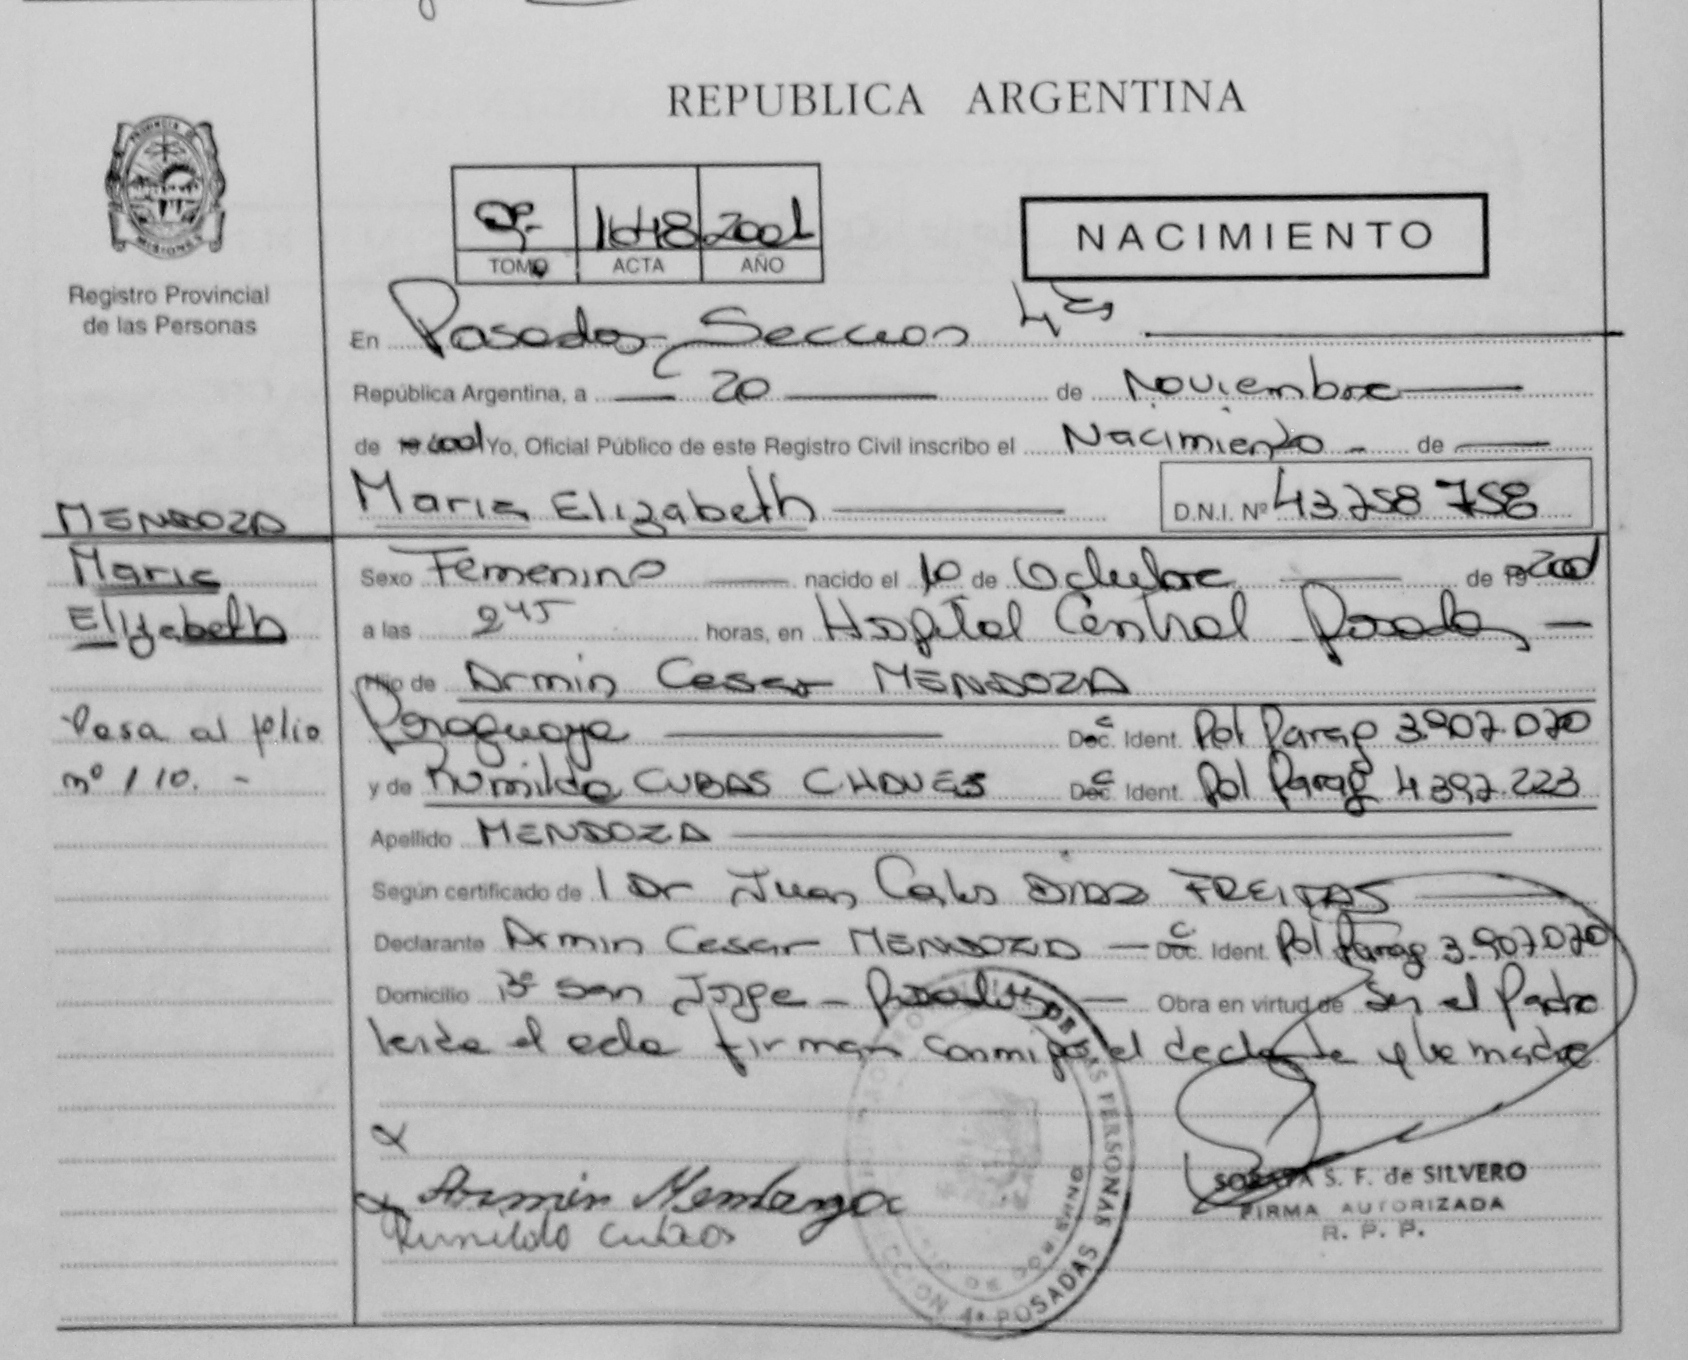 REPUBLICA ARGENTINA
PROVINCIA DE MISIONES
Registro Provincial
de las Personas
1648 2001
TOMO ACTA AÑO
NACIMIENTO
En Posadas Seccion 4ta
República Argentina, a 20 de Noviembre
de 2001 Yo, Oficial Público de este Registro Civil inscribo el Nacimiento de
Maria Elizabeth D.N.I. Nº 43.758 758
MENDOZA
Maria
Elizabeth
Pasa al folio
nº 110.-
Sexo Femenino nacido el 10 de Octubre de 2001
a las 245 horas, en Hospital Central Posadas
Hijo de Armin Cesar MENDOZA
Paraguaya Doc. Ident. Pol Parag 3.907.070
y de Rumilda CUBAS CHAVES Doc. Ident. Pol Parag 4397.223
Apellido MENDOZA
Según certificado de 1 Dr Juan Carlos DIAZ FREITAS
Declarante Armin Cesar MENDOZA Doc. Ident. Pol Parag 3.907.070
Domicilio Bº San Jorge - Posadas Obra en virtud de Ser el Padre
leida el acta firman conmigo el declarante y la madre
Armin Mendoza
Rumilda Cubas
S. F. de SILVERO
FIRMA AUTORIZADA
R. P. P.
DE LAS PERSONAS
CCION 4ª POSADAS